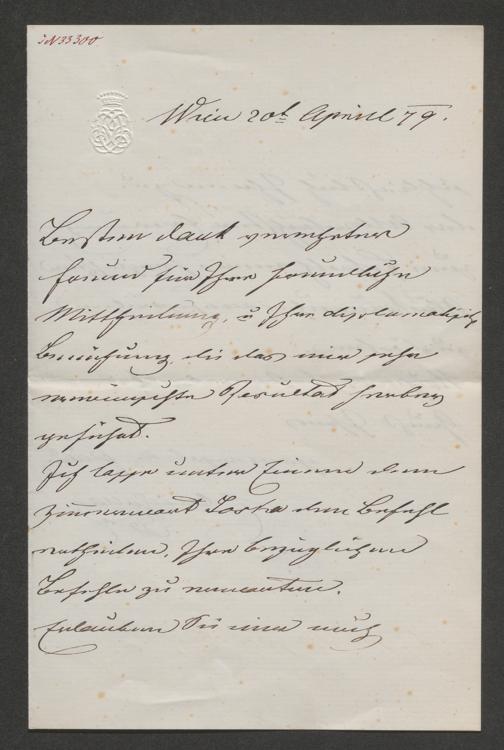 JN 33300
Wien 20t April 79.
Besten Dank verehrter
Freund für Ihre freundliche
Mittheilung, u Ihre diplomatische
Bemühung, die das mir sehr
erwünschte Resultat herbey
geführt.
Ich lasse unter Einem dem
den Befehl
ertheilen, Ihre bezüglichen
Befehle zu erwarten.
Erlauben Sie mir noch